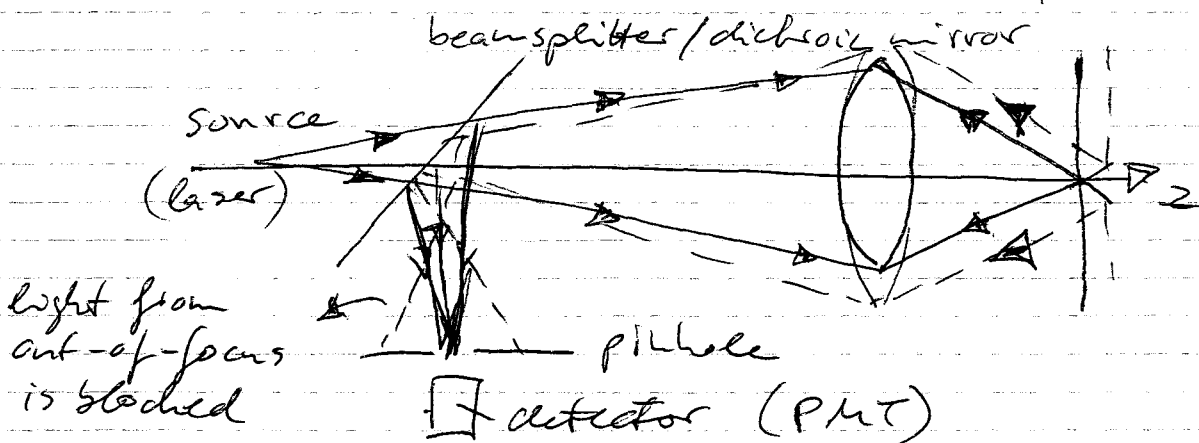 beamsplitter/dichroic mirror
source
(laser)
z
light from
out-of-focus
is blocked
pinhole
detector (PMT)